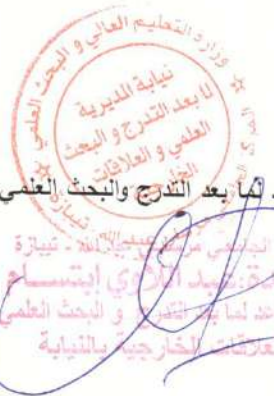 وزارة التعليم العالي و البحث العلمي
نيابة المديرية
لما بعد التدرج و البحث
العلمي و العلاقات
الخارجية
تيبازة
لما بعد التدرج والبحث العلمي
الجامعي مرسلي عبد الله - تيبازة
لما بعد التدرج و البحث العلمي
العلاقات الخارجية بالنيابة